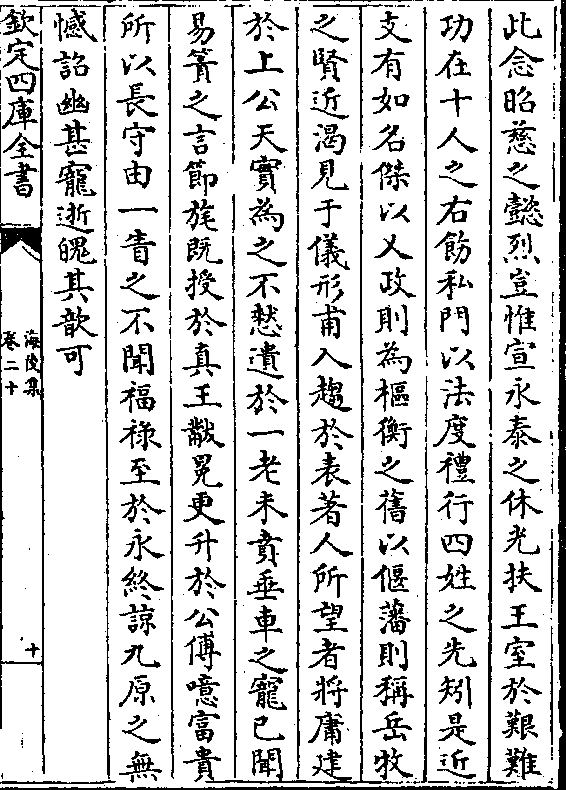 此念昭慈之懿烈豈惟宣永泰之休光扶王室於艱難
功在十人之右飭私門以法度禮行四姓之先矧是近
支有如名傑以乂政則為樞衡之舊以偃藩則稱岳牧
之賢近渴見于儀形甫入趨於表著人所望者將庸建
於上公天實為之不憗遺於一老未賁垂車之寵已聞
易簀之言節旄既授於真王黻冕更升於公傅噫富貴
所以長守由一眚之不聞福祿至於永終諒九原之無
憾詔幽甚寵逝魄其歆可
欽定四庫全書
海陵集
卷二十
十